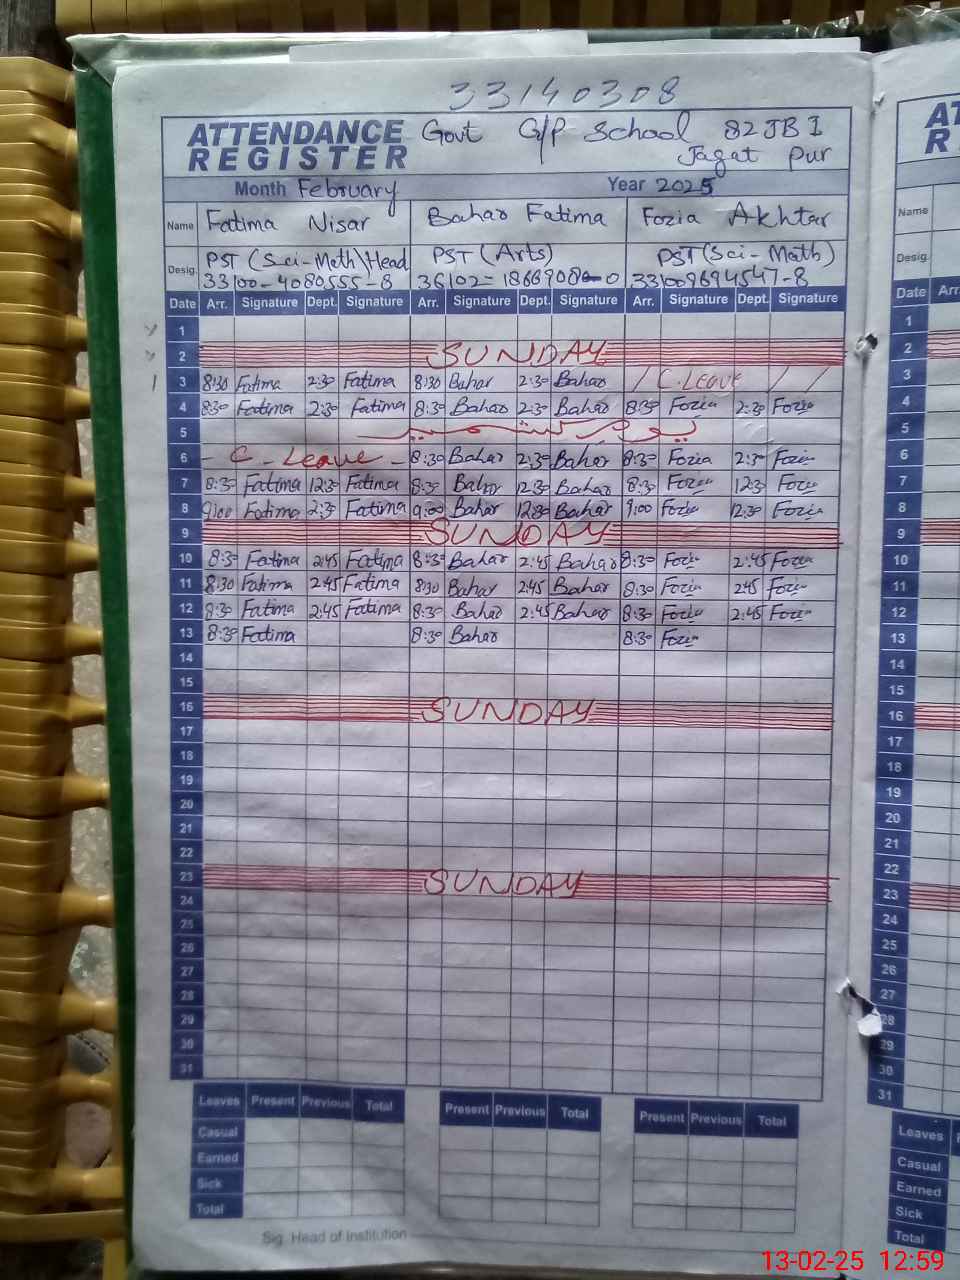 33140308
ATTENDANCE REGISTER Govt G/P School 82 JB I
Jagat Pur
Month February Year 2025
Name Fatima Nisar Bahar Fatima Fozia Akhtar
Desig. PST (Sci-Math) Head PST (Arts) PST (Sci-Math)
33100-4080555-8 331009694547-8
Date Arr. Signature Dept. Signature Arr. Signature Dept. Signature Arr. Signature Dept. Signature
1
2 SUNDAY
3 8:30 Fatima 2:30 Fatima 8:30 Bahar 2:30 Bahar / C.LEAVE / /
4 8:30 Fatima 2:30 Fatima 8:30 Bahar 2:30 Bahar 8:30 Fozia 2:30 Fozia
5 یوم کشمیر
6 - C - Leave - 8:30 Bahar 2:30 Bahar 8:30 Fozia 2:30 Fozia
7 8:30 Fatima 12:30 Fatima 8:30 Bahar 12:30 Bahar 8:30 Fozia 12:30 Fozia
8 9:00 Fatima 2:30 Fatima 9:00 Bahar 12:30 Bahar 9:00 Fozia 12:30 Fozia
9 SUNDAY
10 8:30 Fatima 2:45 Fatima 8:30 Bahar 2:45 Bahar 8:30 Fozia 2:45 Fozia
11 8:30 Fatima 2:45 Fatima 8:30 Bahar 2:45 Bahar 8:30 Fozia 2:45 Fozia
12 8:30 Fatima 2:45 Fatima 8:30 Bahar 2:45 Bahar 8:30 Fozia 2:45 Fozia
13 8:30 Fatima 8:30 Bahar 8:30 Fozia
14
15
16 SUNDAY
17
18
19
20
21
22
23 SUNDAY
24
25
26
27
28
29
30
31
Leaves Present Previous Total Present Previous Total Present Previous Total
Casual
Earned
Sick
Total
Sig. Head of Institution
AT
R
Name
Desig.
Date Arr.
1
2
3
4
5
6
7
8
9
10
11
12
13
14
15
16
17
18
19
20
21
22
23
24
25
26
27
28
29
30
31
Leaves
Casual
Earned
Sick
Total
13-02-25 12:59